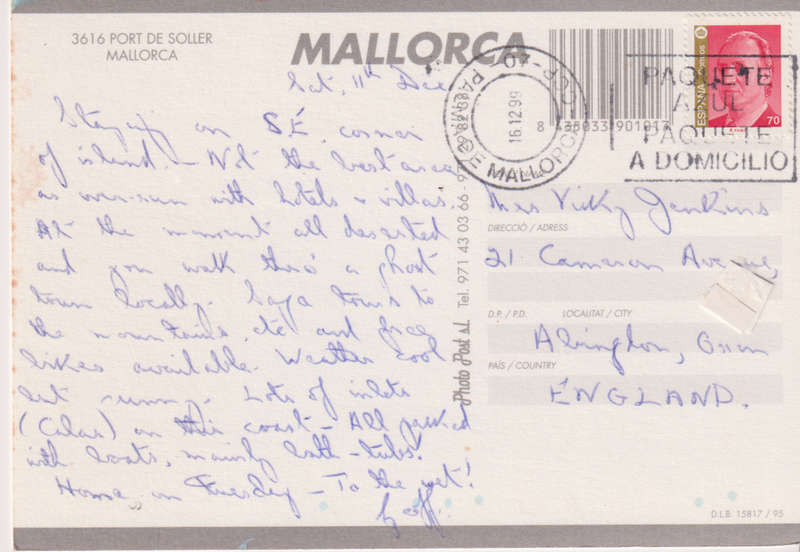 3616 PORT DE SOLLER
MALLORCA
MALLORCA
Sat, 11th Dec
Staying on S.E. corner
of island – Not the best area
as over-run with hotels + villas.
At the moment all deserted
and you walk thro' a ghost
town locally. Saga tours to
the mountains etc and free
bikes available. Weather cool
but sunny. Lots of inlets
(Calas) on this coast – All packed
with boats, mainly bath-tubs!
Home on Tuesday – To the wet!
Geoff.
Photo Post s.l. Tel. 971 43 03 66 - 9
PALMA DE MALLORCA
16.12.99
8 436033 901017
PAQUETE
AZUL
PAQUETE
A DOMICILIO
ESPAÑA
correos
70
Mrs Vicky Jenkins
DIRECCIÓ / ADRESS
21 Cameron Avenue,
D.P. / P.D. LOCALITAT / CITY
Abingdon, Oxon
PAÍS / COUNTRY
ENGLAND.
D.L.B. 15817 / 95